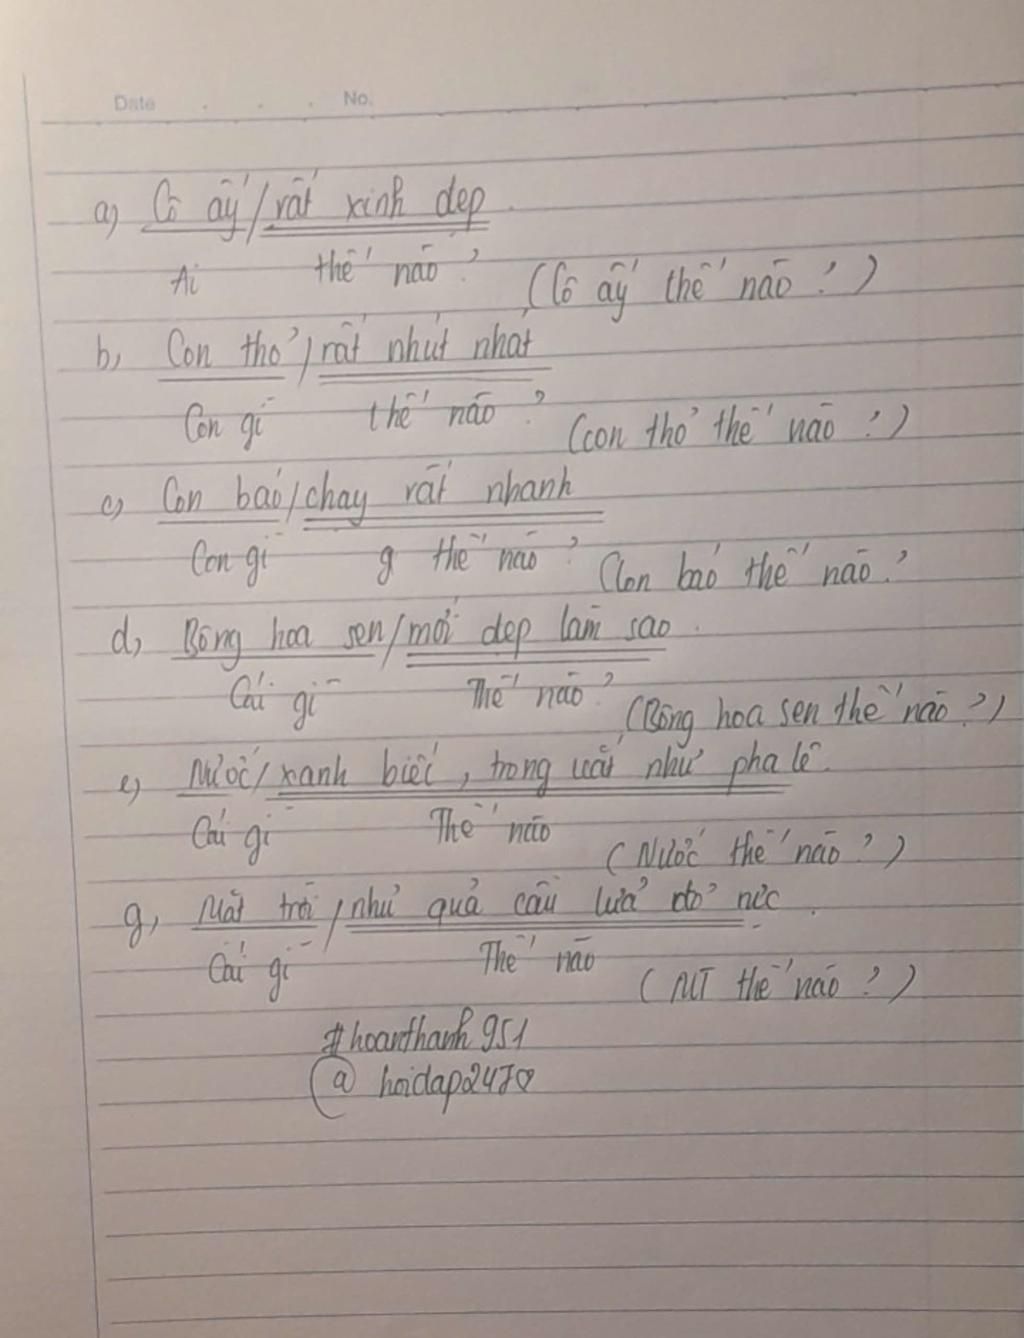 Date . . . No.
a) Cô ấy / rất xinh đẹp.
Ai thế nào? (Cô ấy thế nào?)
b) Con thỏ / rất nhút nhát
Con gì thế nào? (con thỏ thế nào?)
c) Con báo / chạy rất nhanh
Con gì g thế nào? (Con báo thế nào?
d) Bông hoa sen / mới đẹp làm sao.
Cái gì Thế nào? (Bông hoa sen thế nào?)
e) Nước / xanh biếc, trong vắt như pha lê.
Cái gì Thế nào (Nước thế nào?)
g) Mặt trời / như quả cầu lửa đỏ nực.
Cái gì Thế nào (MT thế nào?)
#hoanthanh951
@hoidap247♡